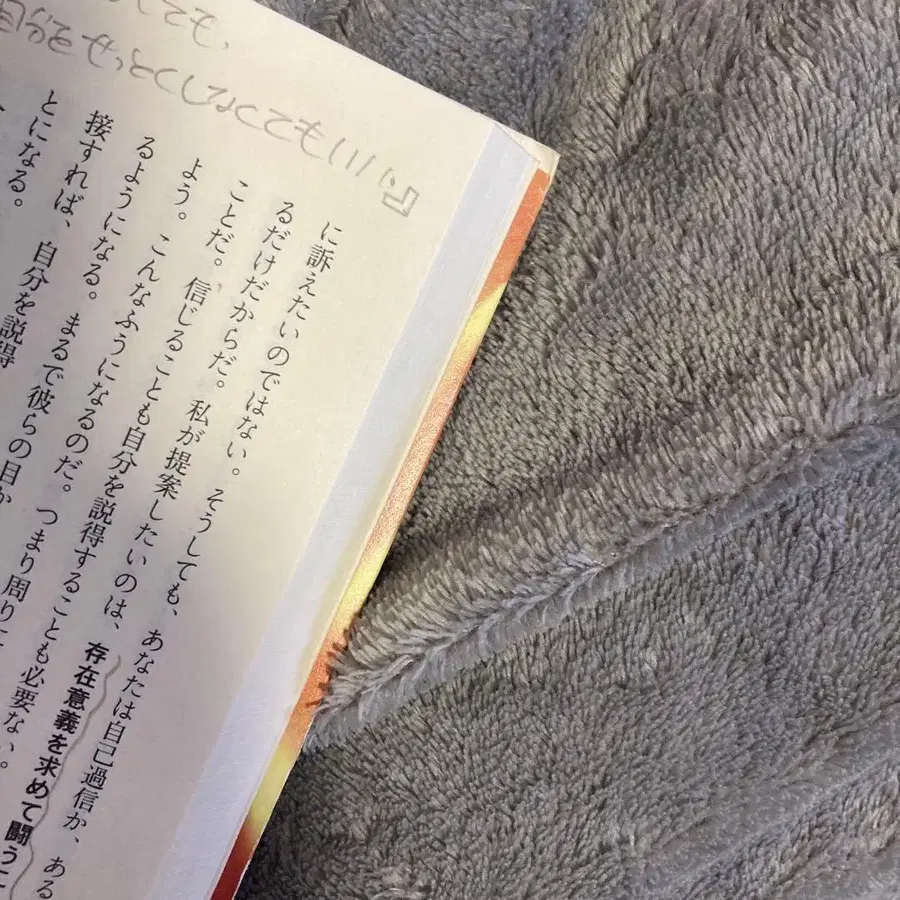 ても、
自分をせっとくしなくてもいい
に訴えたいのではない。そうしても、あなたは自己過信か、ある
るだけだからだ。私が提案したいのは、存在意義を求めて闘う
ことだ。信じることも自分を説得することも必要ない。
よう。こんなふうになるのだ。つまり周りに
るようになる。まるで彼らの目か
接すれば、自分を説得
とになる。